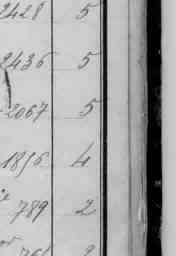 2428 5
2436 5
2067 5
1896 4
789 2